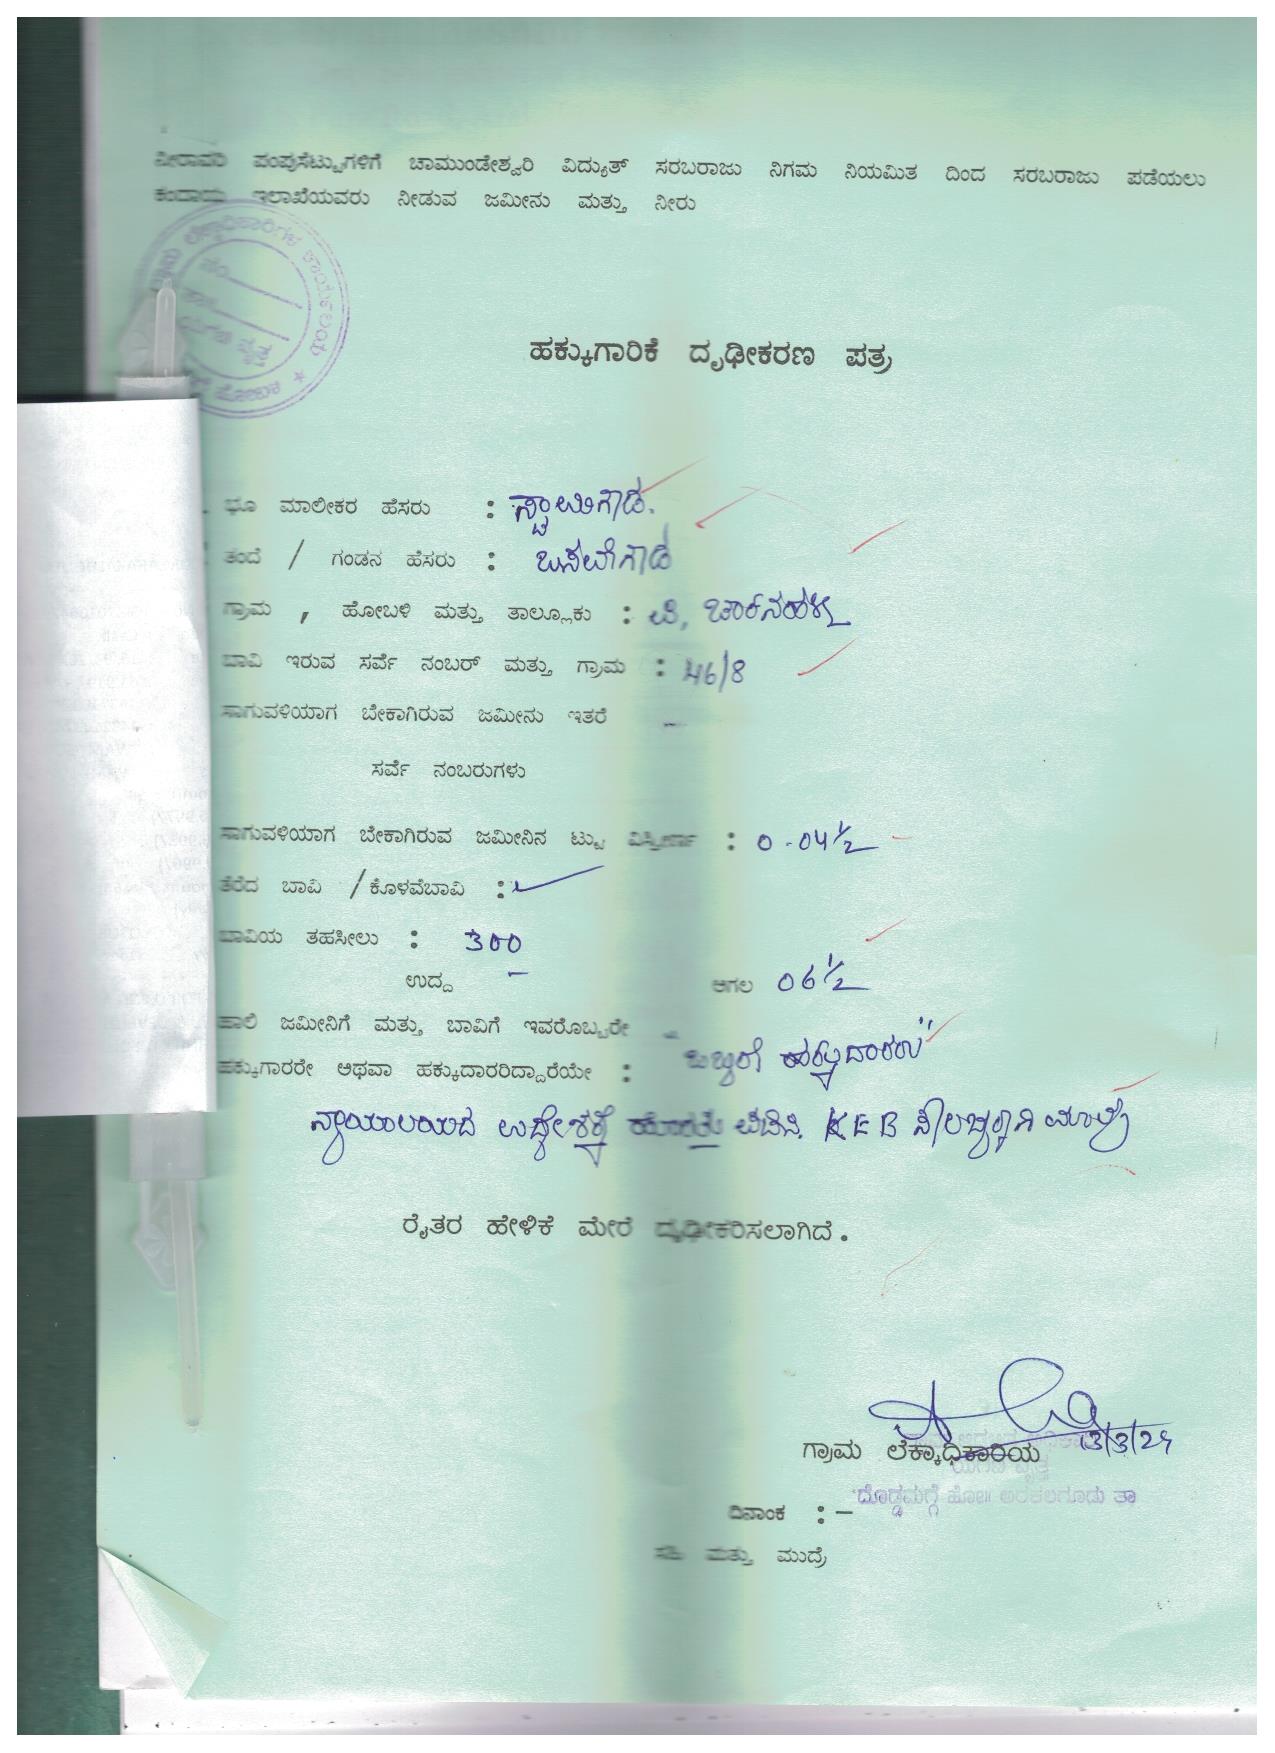 ನೀರಾವರಿ ಪಂಪುಸೆಟ್ಟುಗಳಿಗೆ ಚಾಮುಂಡೇಶ್ವರಿ ವಿದ್ಯುತ್ ಸರಬರಾಜು ನಿಗಮ ನಿಯಮಿತ ದಿಂದ ಸರಬರಾಜು ಪಡೆಯಲು
ಕಂದಾಯ ಇಲಾಖೆಯವರು ನೀಡುವ ಜಮೀನು ಮತ್ತು ನೀರು
ಹಕ್ಕುಗಾರಿಕೆ ದೃಢೀಕರಣ ಪತ್ರ
ಭೂ ಮಾಲೀಕರ ಹೆಸರು : ಸ್ವಾಮಿಗೌಡ.
ತಂದೆ / ಗಂಡನ ಹೆಸರು : ಬಸವೇಗೌಡ
ಗ್ರಾಮ , ಹೋಬಳಿ ಮತ್ತು ತಾಲ್ಲೂಕು :
ಬಾವಿ ಇರುವ ಸರ್ವೆ ನಂಬರ್ ಮತ್ತು ಗ್ರಾಮ : 46/8
ಸಾಗುವಳಿಯಾಗ ಬೇಕಾಗಿರುವ ಜಮೀನು ಇತರೆ —
ಸರ್ವೆ ನಂಬರುಗಳು
ಸಾಗುವಳಿಯಾಗ ಬೇಕಾಗಿರುವ ಜಮೀನಿನ ಟ್ಟು ವಿಸ್ತೀರ್ಣ : 0-04½
ತೆರೆದ ಬಾವಿ /ಕೊಳವೆಬಾವಿ :
ಬಾವಿಯ ತಹಸೀಲು : 300
ಉದ್ದ ಅಗಲ 06½
ಹಾಲಿ ಜಮೀನಿಗೆ ಮತ್ತು ಬಾವಿಗೆ ಇವರೊಬ್ಬರೇ
ಹಕ್ಕುಗಾರರೇ ಅಥವಾ ಹಕ್ಕುದಾರರಿದ್ದಾರೆಯೇ : "ಒಬ್ಬರೇ ಹಕ್ಕುದಾರರು"
ನ್ಯಾಯಾಲಯದ ಉದ್ದೇಶಕ್ಕೆ ಹೊರತು ಪಡಿಸಿ. KEB
ರೈತರ ಹೇಳಿಕೆ ಮೇರೆ ದೃಢೀಕರಿಸಲಾಗಿದೆ.
13/3/24
ಗ್ರಾಮ ಲೆಕ್ಕಾಧಿಕಾರಿಯ
ದೊಡ್ಡಮಗ್ಗೆ ಹೋ॥ ಅರಕಲಗೂಡು ತಾ
ದಿನಾಂಕ :-
ಸಹಿ ಮತ್ತು ಮುದ್ರೆ